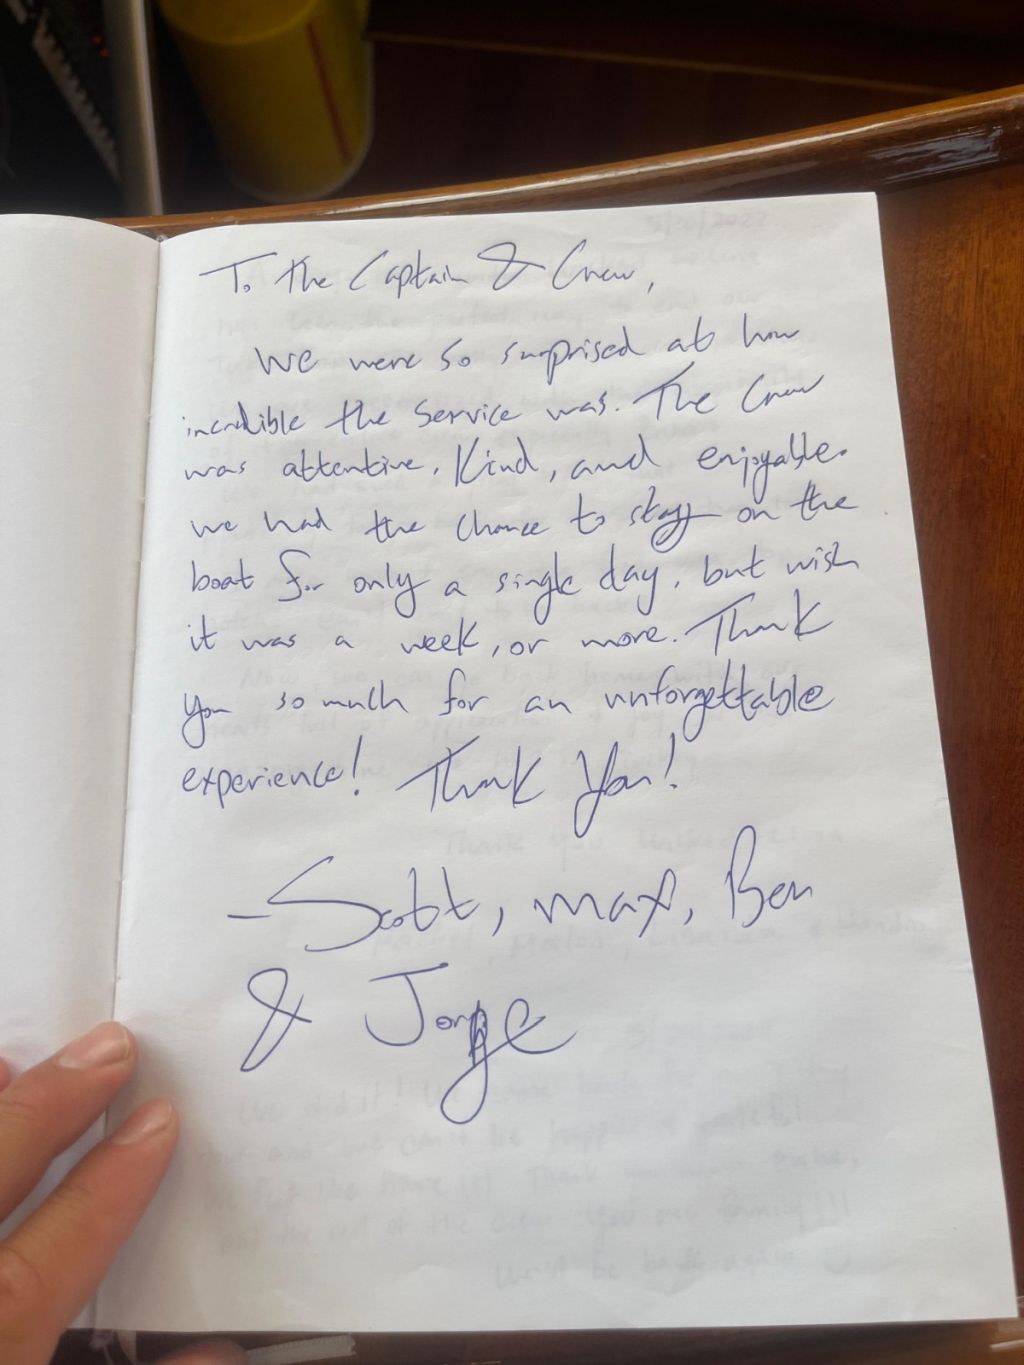 To the Captain & Crew,
We were so surprised at how
incredible the service was. The Crew
was attentive, Kind, and enjoyable.
we had the chance to stay on the
boat for only a single day, but wish
it was a week, or more. Thank
you so much for an unforgettable
experience! Thank You!
-Scott, Max, Ben
& Jorge